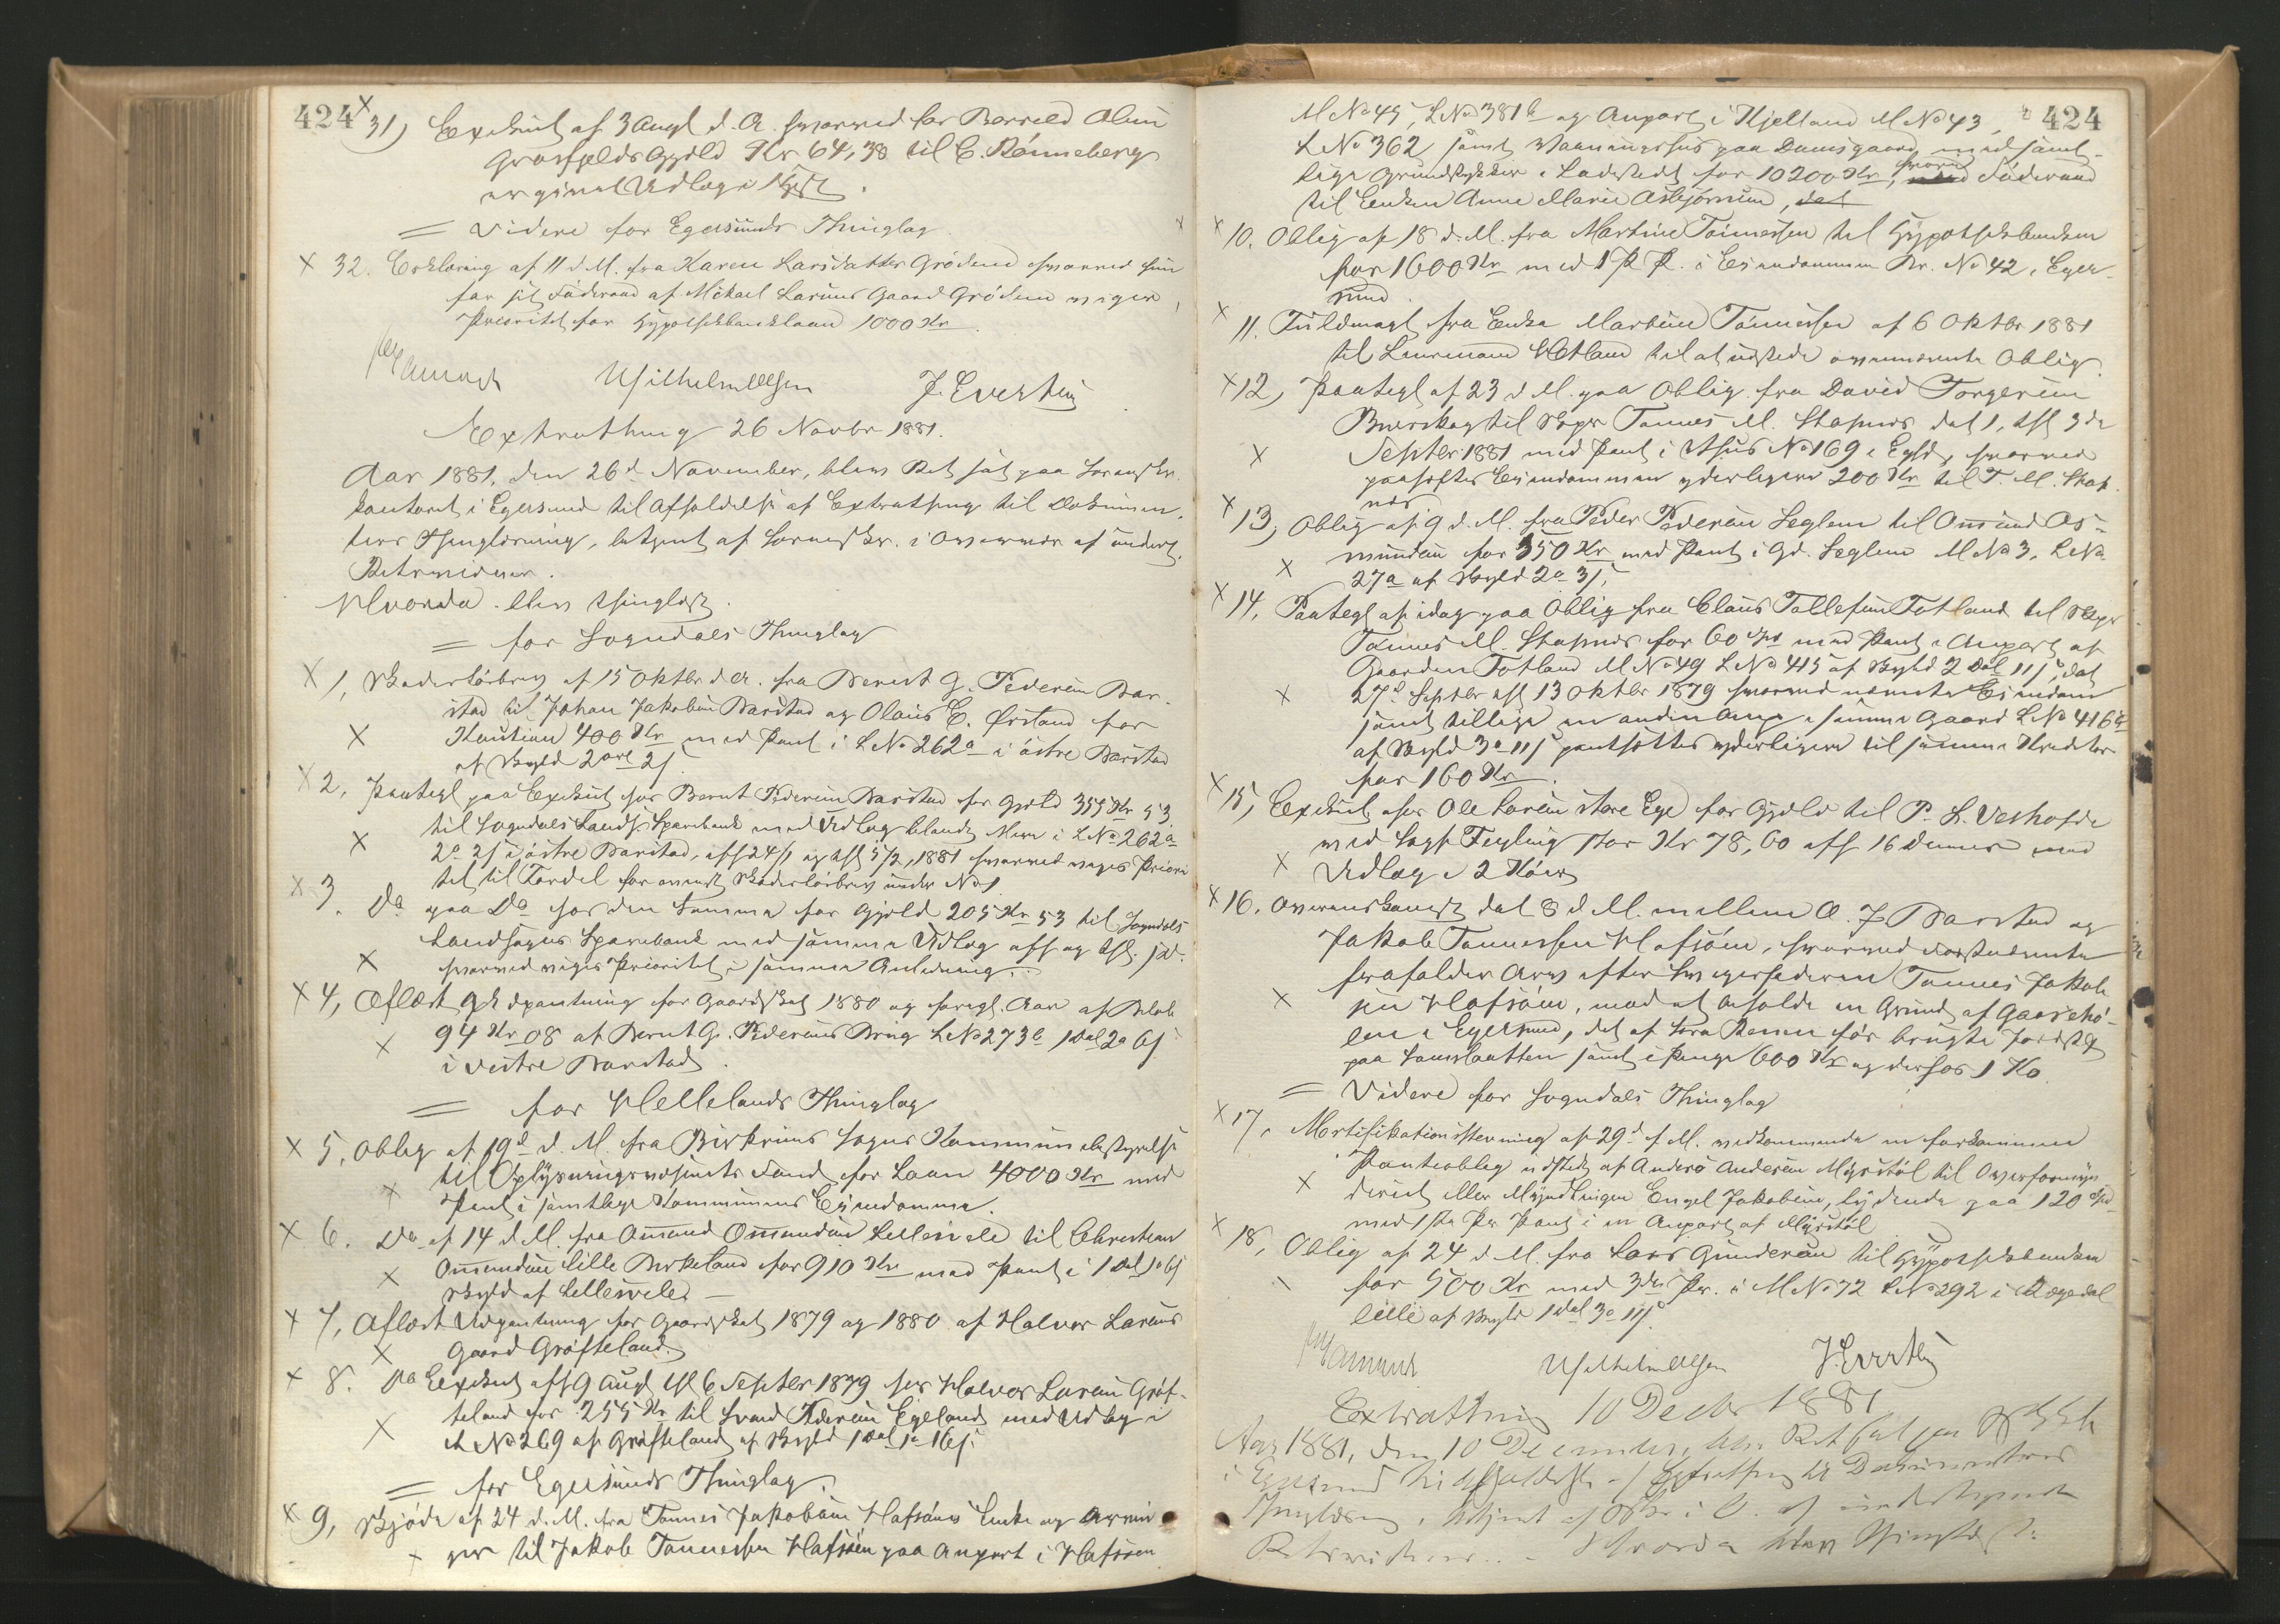 424
31) Exekut. af 3 Augt d. A. hvorved for Berreld Olsen
Grøsfjelds Gjeld Kr 64,38 til C. Rønneberg
er givet Udlæg i
= Videre for Egersunds Thinglag
32. Erklæring af 11 d. M. fra Karen Larsdatter Grødem hvorved hun
for sit Føderaad af Mikael Larsens Gaard Grødem viger
Prioritet for Hypothekbanklaan 1000 Kr.
Wilhelm Olsen J. Evertsen
Extrathing 26 Novbr 1881.
Aar 1881, den 26d November, blev Ret sat paa Sorenskr.
kontoret i Egersund til Afholdelse af Extrathing til Dokumen-
ters Thinglæsning, betjent af Sorenskr. i Overvær af undert.
Retsvidner.
Hvorda blev thinglæst.
= for Sogndals Thinglag
1, Skadesløsbrev af 15 Oktbr d. A. fra Bernt G. Pedersen Bar-
stad til Johan Jakobsen Barstad og Olaus E. Ørsland for
Kaution 400 Kr med Pant i L No 262a i østre Barstad
af Skyld 2 ort 2 s
2, Paategt paa Exekut. hos Bernt Pedersen Barstad for Gjeld 355 Kr 53
til Sogndals Lands. Sparebank med Udlæg blandt Mere i L No 262a
2o 2s i østre Barstad, afh 24/1 og thl 5/2, 1881 hvorved viges Priori
tet til Fordel for ovennt Skadesløsbrev under No 1
3. Do paa Do hos den Samme for Gjeld 205 Kr 53 til Sogndals
Landsogns Sparebank med samme Udlæg afh og thl.
hvorved viges Prioritet i samme Anledning.
4, Aflæst Udpantning for Gaardskat 1880 og foregt. Aar af Beløb
94 Kr 08 at Bernt G. Pedersens Brug L No 273b 1 Dal 2o 6s
i vestre Barstad.
= for Hellelands Thinglag
5, Oblig af 19d d. M. fra Birkrims Sogns Kommunebestyrelse
til Oplysningsvæsenets Fond for Laan 4000 Kr med
Pant i samtlige Kommunens Eiendomme.
6. Do af 14 d. M. fra Omund Omundsen Lillesvele til Christian
Omundsen lille Birkeland for 910 Kr med Pant i 1 Dal 1o 6s
Skyld af Lillesvele. —
7, Aflæst Udpantning for Gaardskat 1879 og 1880 af Halvor Larsens
Gaard Grøfteland.
8. Do Exekut. afh 9 Augt thl 6 Septbr 1879 hos Halvor Larsen Grøf-
teland for 255 Kr til Svend Pedersen Egeland med Udlæg i
L No 269 af Grøfteland af Skyld 1 Dal 1o 16s.
= for Egersunds Thinglag.
9, Skjøde af 24 d. M. fra Tønnes Jakobsen Hafsøes Enke og Arvin
ger til Jakob Tønnessen Hafsøen paa Anpart i Hafsøen
424
M No 45, L No 381b og Anpart i Kjelland M No 43,
L No 362 samt Vaaningshus paa Damsgaard med samt-
lige Grundstykker i Ladestedt for 10200 Kr, hvorved Føderaad
til Enken Anne Marie Asbjørnsen,
10. Oblig af 18 d. M. fra Martine Tønnessen til Hypothekbanken
for 1600 Kr med 1 P R. i Eiendommen Br. No 42, Eger-
sund.
11. Fuldmagt fra Enke Martine Tønnessen af 6 Oktbr 1881
til Lensmand Hetland til at udstede ovennævnte Oblig.
12, Paategt af 23 d M. paa Oblig fra David Torgersen
til Skpr Tønnes M. Stapnes dat 1, thl 3de
Septbr 1881 med Pant i Hus No 169 i Egsd, hvorved
pantsættes Eiendommen yderligere 200 Kr til T. M. Stap
nes
13, Oblig af 9 d. M. fra Peder Pedersen Seglem til Omund As-
mundsen for 350 Kr med Pant i Gd. Seglem M No 3, L No
27a af Skyld 2o 3s,
14, Paategt af idag paa Oblig fra Claus Tollefsen Totland til Skpr
Tønnes M. Stapnes for 60 Spd med Pant i Anpart af
Gaarden Totland M No 49 L No 415 af Skyld 2 Dal 11s, dat
27d Septbr thl 13 Oktbr 1879 hvorved nævnte Eiendom
samt tillige en anden Anp. i samme Gaard L No 416a
af Skyld 3o 11s pantsættes yderligere til samme Kreditor
for 160 Kr.
15, Exekut. hos Ole Larsen store Ege for Gjeld til P. L. Veshofde
ved Sagf. Feyling stor Kr 78,60 afh 16 dennes med
Udlæg i 2 Kør
16. Overenskomst dat 8 d. M. mellem O. J. Barstad og
Jakob Tønnessen Hafsøen, hvorved førstnævnte
frafalder Arv efter Svigerfaderen Tønnes Jakob
sen Hafsøen, mod at beholde en Grund af Gaasehó-
len i Egersund, det af Lars før brugte Jordst.
paa samt i Penge 600 Kr og derhos 1 Ko
= Videre for Sogndals Thinglag
17, Mortifikationsstevning af 29d f. M. vedkommende en forkommen
Panteoblig udstedt af Anders Andersen Myrstøl til Overformyn
deriet eller Myndlingen Engel Jakobsen, lydende paa 120 Spd
med 1ste Pr. Pant i en Anpart af Myrstøl
18, Oblig af 24 d M. fra Lars Gundersen til Hypothekbanken
for 500 Kr med 3die Pr. i M No 72 L No 292 i Rægedal
lille af Skyld 1 Dal 3o 11s.
Wilhelm Olsen J. Evertsen
Extrathing 10 Decbr 1881
Aar 1881, den 10 December, blev Ret sat paa
i Egersund til Afholdelse af Extrathing til Dokumenters
Thinglæsn., betjent af i O. af undertegnede
Retsvidner... Hvorda blev thinglæst: